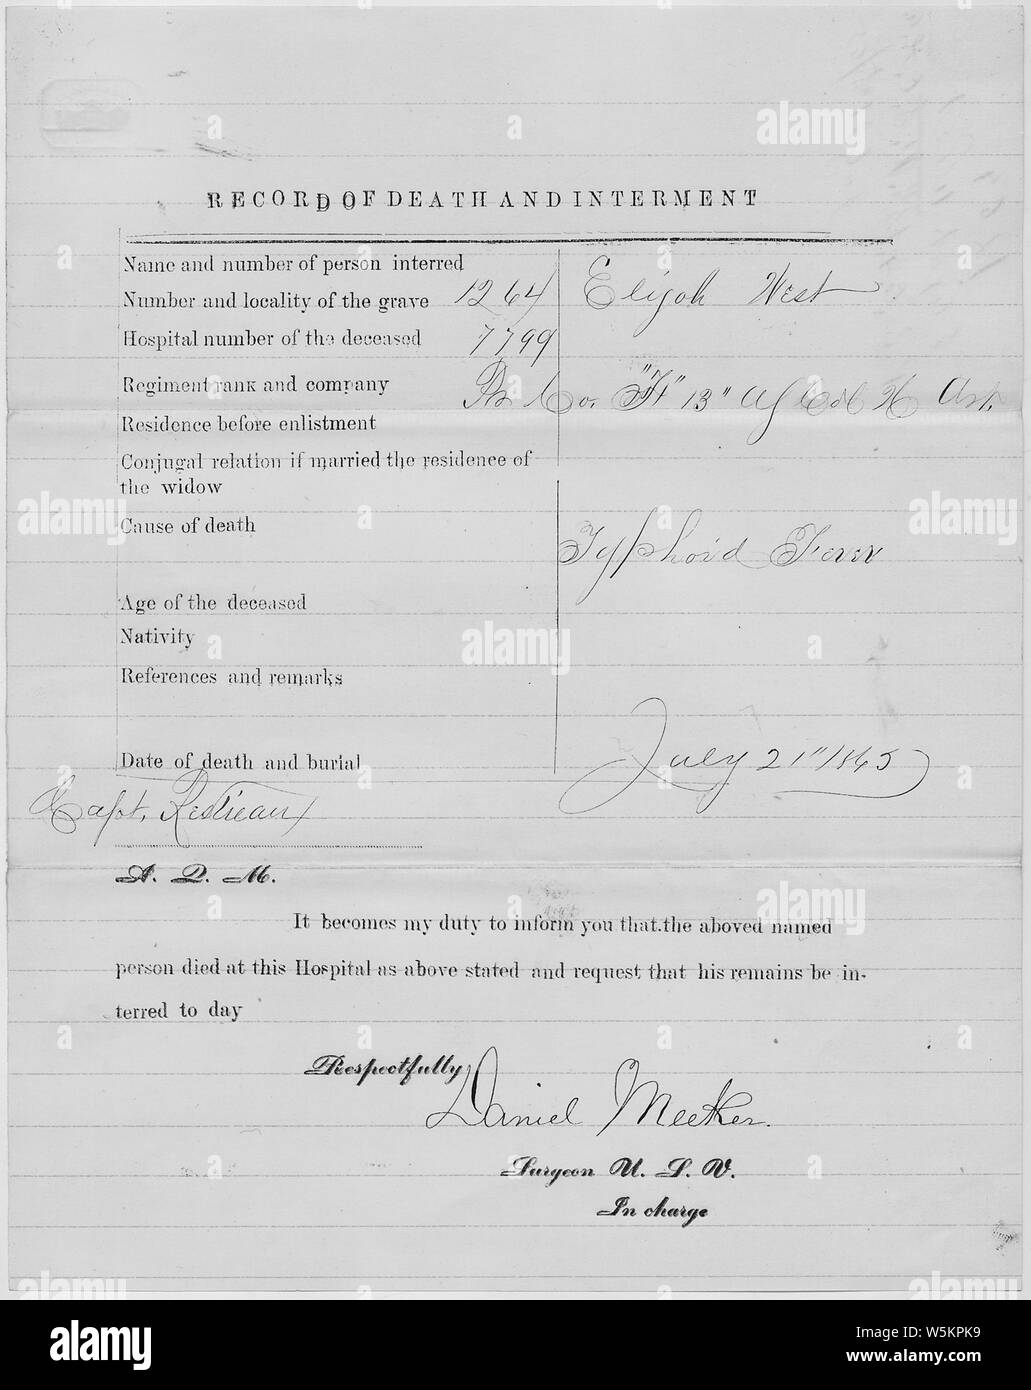 RECORD OF DEATH AND INTERMENT
Name and number of person interred
Number and locality of the grave 1264 Elijah West
Hospital number of the deceased 7799
Regiment rank and company Co. 13" Col H Art.
Residence before enlistment
Conjugal relation if married the residence of
the widow
Cause of death Typhoid Fever
Age of the deceased
Nativity
References and remarks
Date of death and burial July 21" 1865
Capt.
A. Q. M.
It becomes my duty to inform you that.the aboved named
person died at this Hospital as above stated and request that his remains be in-
terred to day
Respectfully
Daniel Meeker.
Surgeon U. S. V.
In charge
alamy
alamy
alamy
alamy
alamy
Image ID: W5KPK9
www.alamy.com